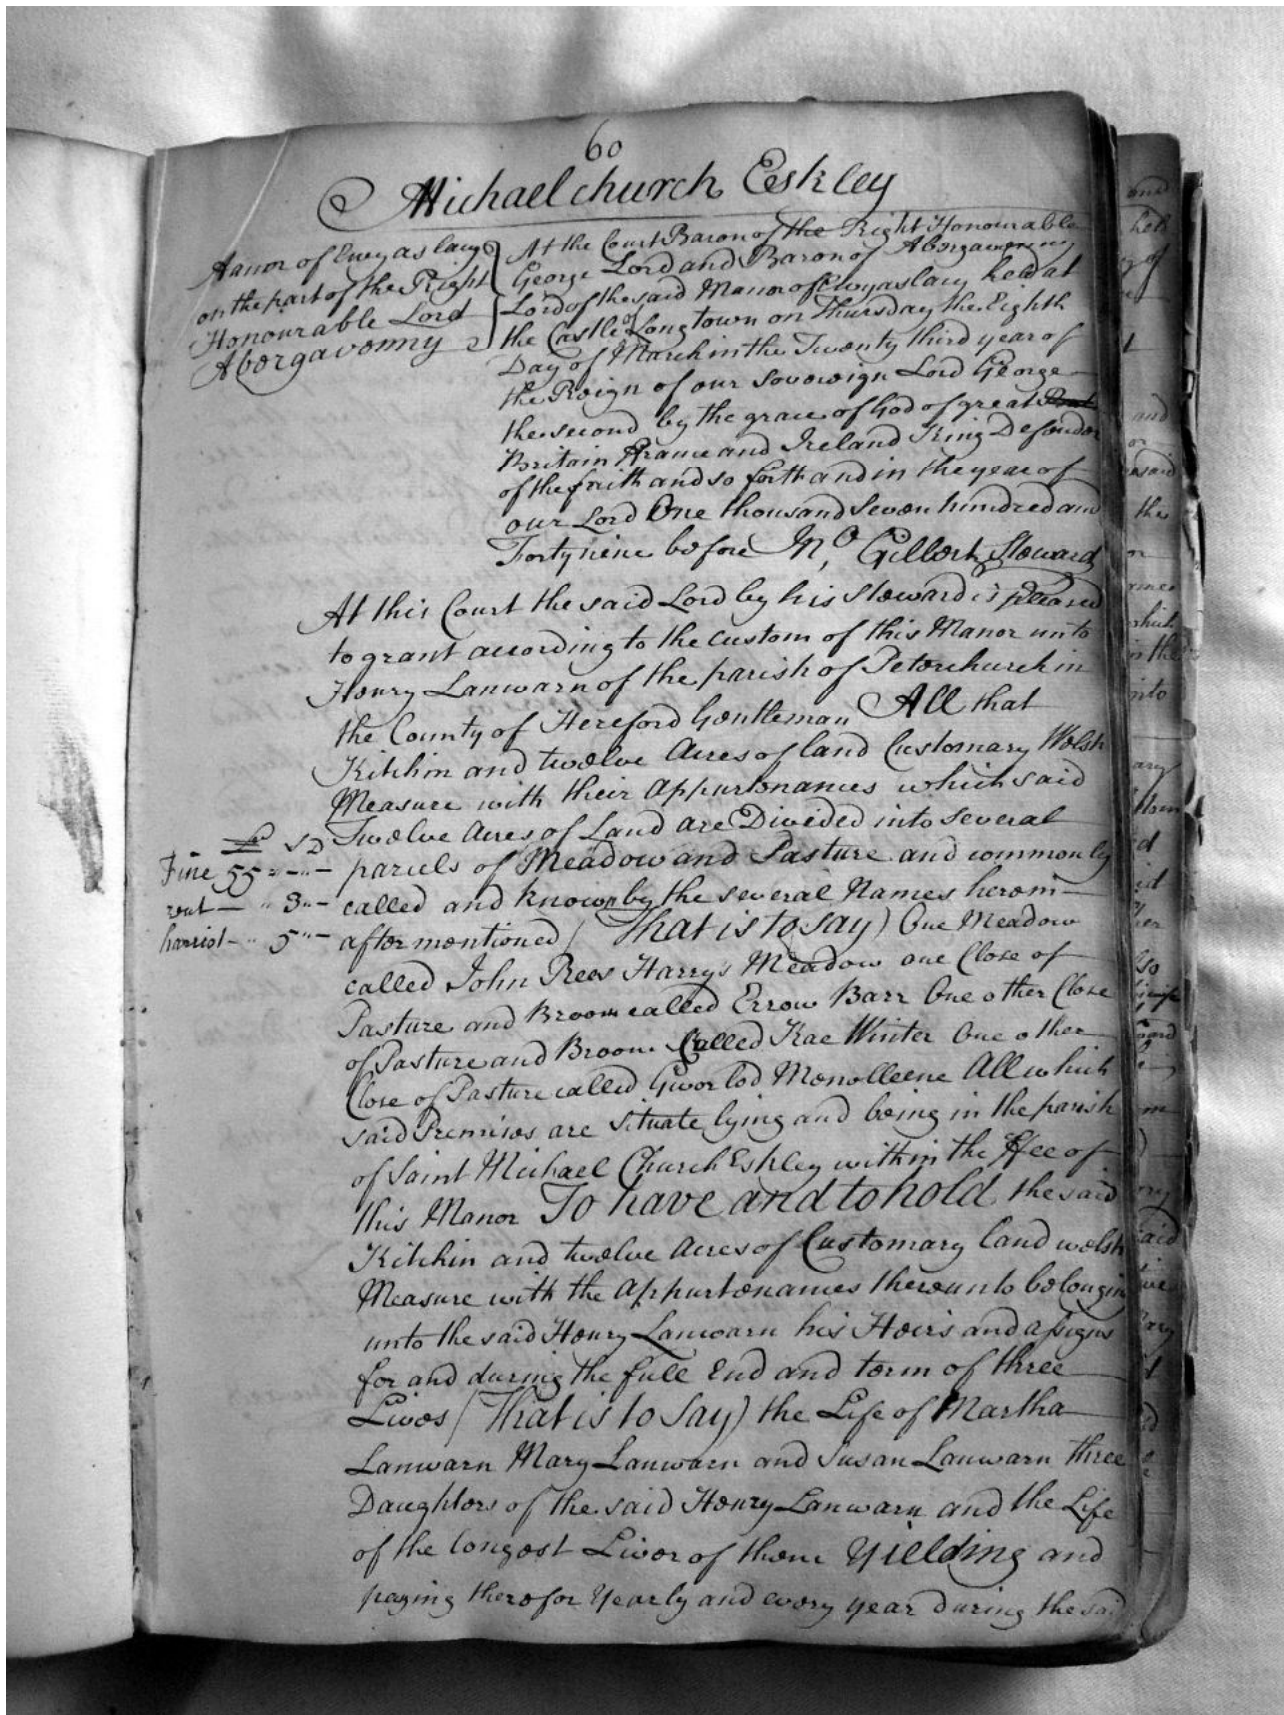 60
Michaelchurch Eskley
Manor of Ewyas lacy
on the part of the Right
Honourable Lord
Abergavenny
At the Court Baron of the Right Honourable
George Lord and Baron of Abergavenny
Lord of the said Manor of Ewyas lacy held at
the Castle of Longtown on Thursday the Eighth
Day of March in the Twenty third year of
the Reign of our Sovereign Lord George
the second by the grace of God of great
Britain France and Ireland King Defender
of the faith and so forth and in the year of
our Lord One thousand Seven hundred and
Forty nine before Mr Gilbert Steward
At this Court the said Lord by his Steward is pleased
to grant according to the custom of this Manor unto
Henry Lanwarn of the parish of Peterchurch in
the County of Hereford Gentleman All that
Kitchin and twelve Acres of land Customary Welsh
Measure with their Appurtenances which said
Twelve Acres of Land are Divided into several
parcels of Meadow and Pasture and commonly
called and known by the several Names herein
after mentioned (That is to say) One Meadow
called John Rees Harrys Meadow one Close of
Pasture and Broom called Errow Barr One other Close
of Pasture and Broom Called Kae Winter One other
Close of Pasture called Gworlod Monolleene All which
said Premises are situate lying and being in the parish
of Saint Michael Church Eskley within the ffee of
this Manor To have and to hold the said
Kitchin and twelve Acres of Customary land welsh
Measure with the Appurtenances thereunto belonging
unto the said Henry Lanwarn his Heirs and assigns
for and during the full End and term of three
Lives (That is to Say) the Life of Martha
Lanwarn Mary Lanwarn and Susan Lanwarn three
Daughters of the said Henry Lanwarn and the Life
of the longest Liver of them Yielding and
paying therefor Yearly and every year during the said
£ s D
Fine 55 " - " -
rent - " 3 " -
harriot - " 5 " -